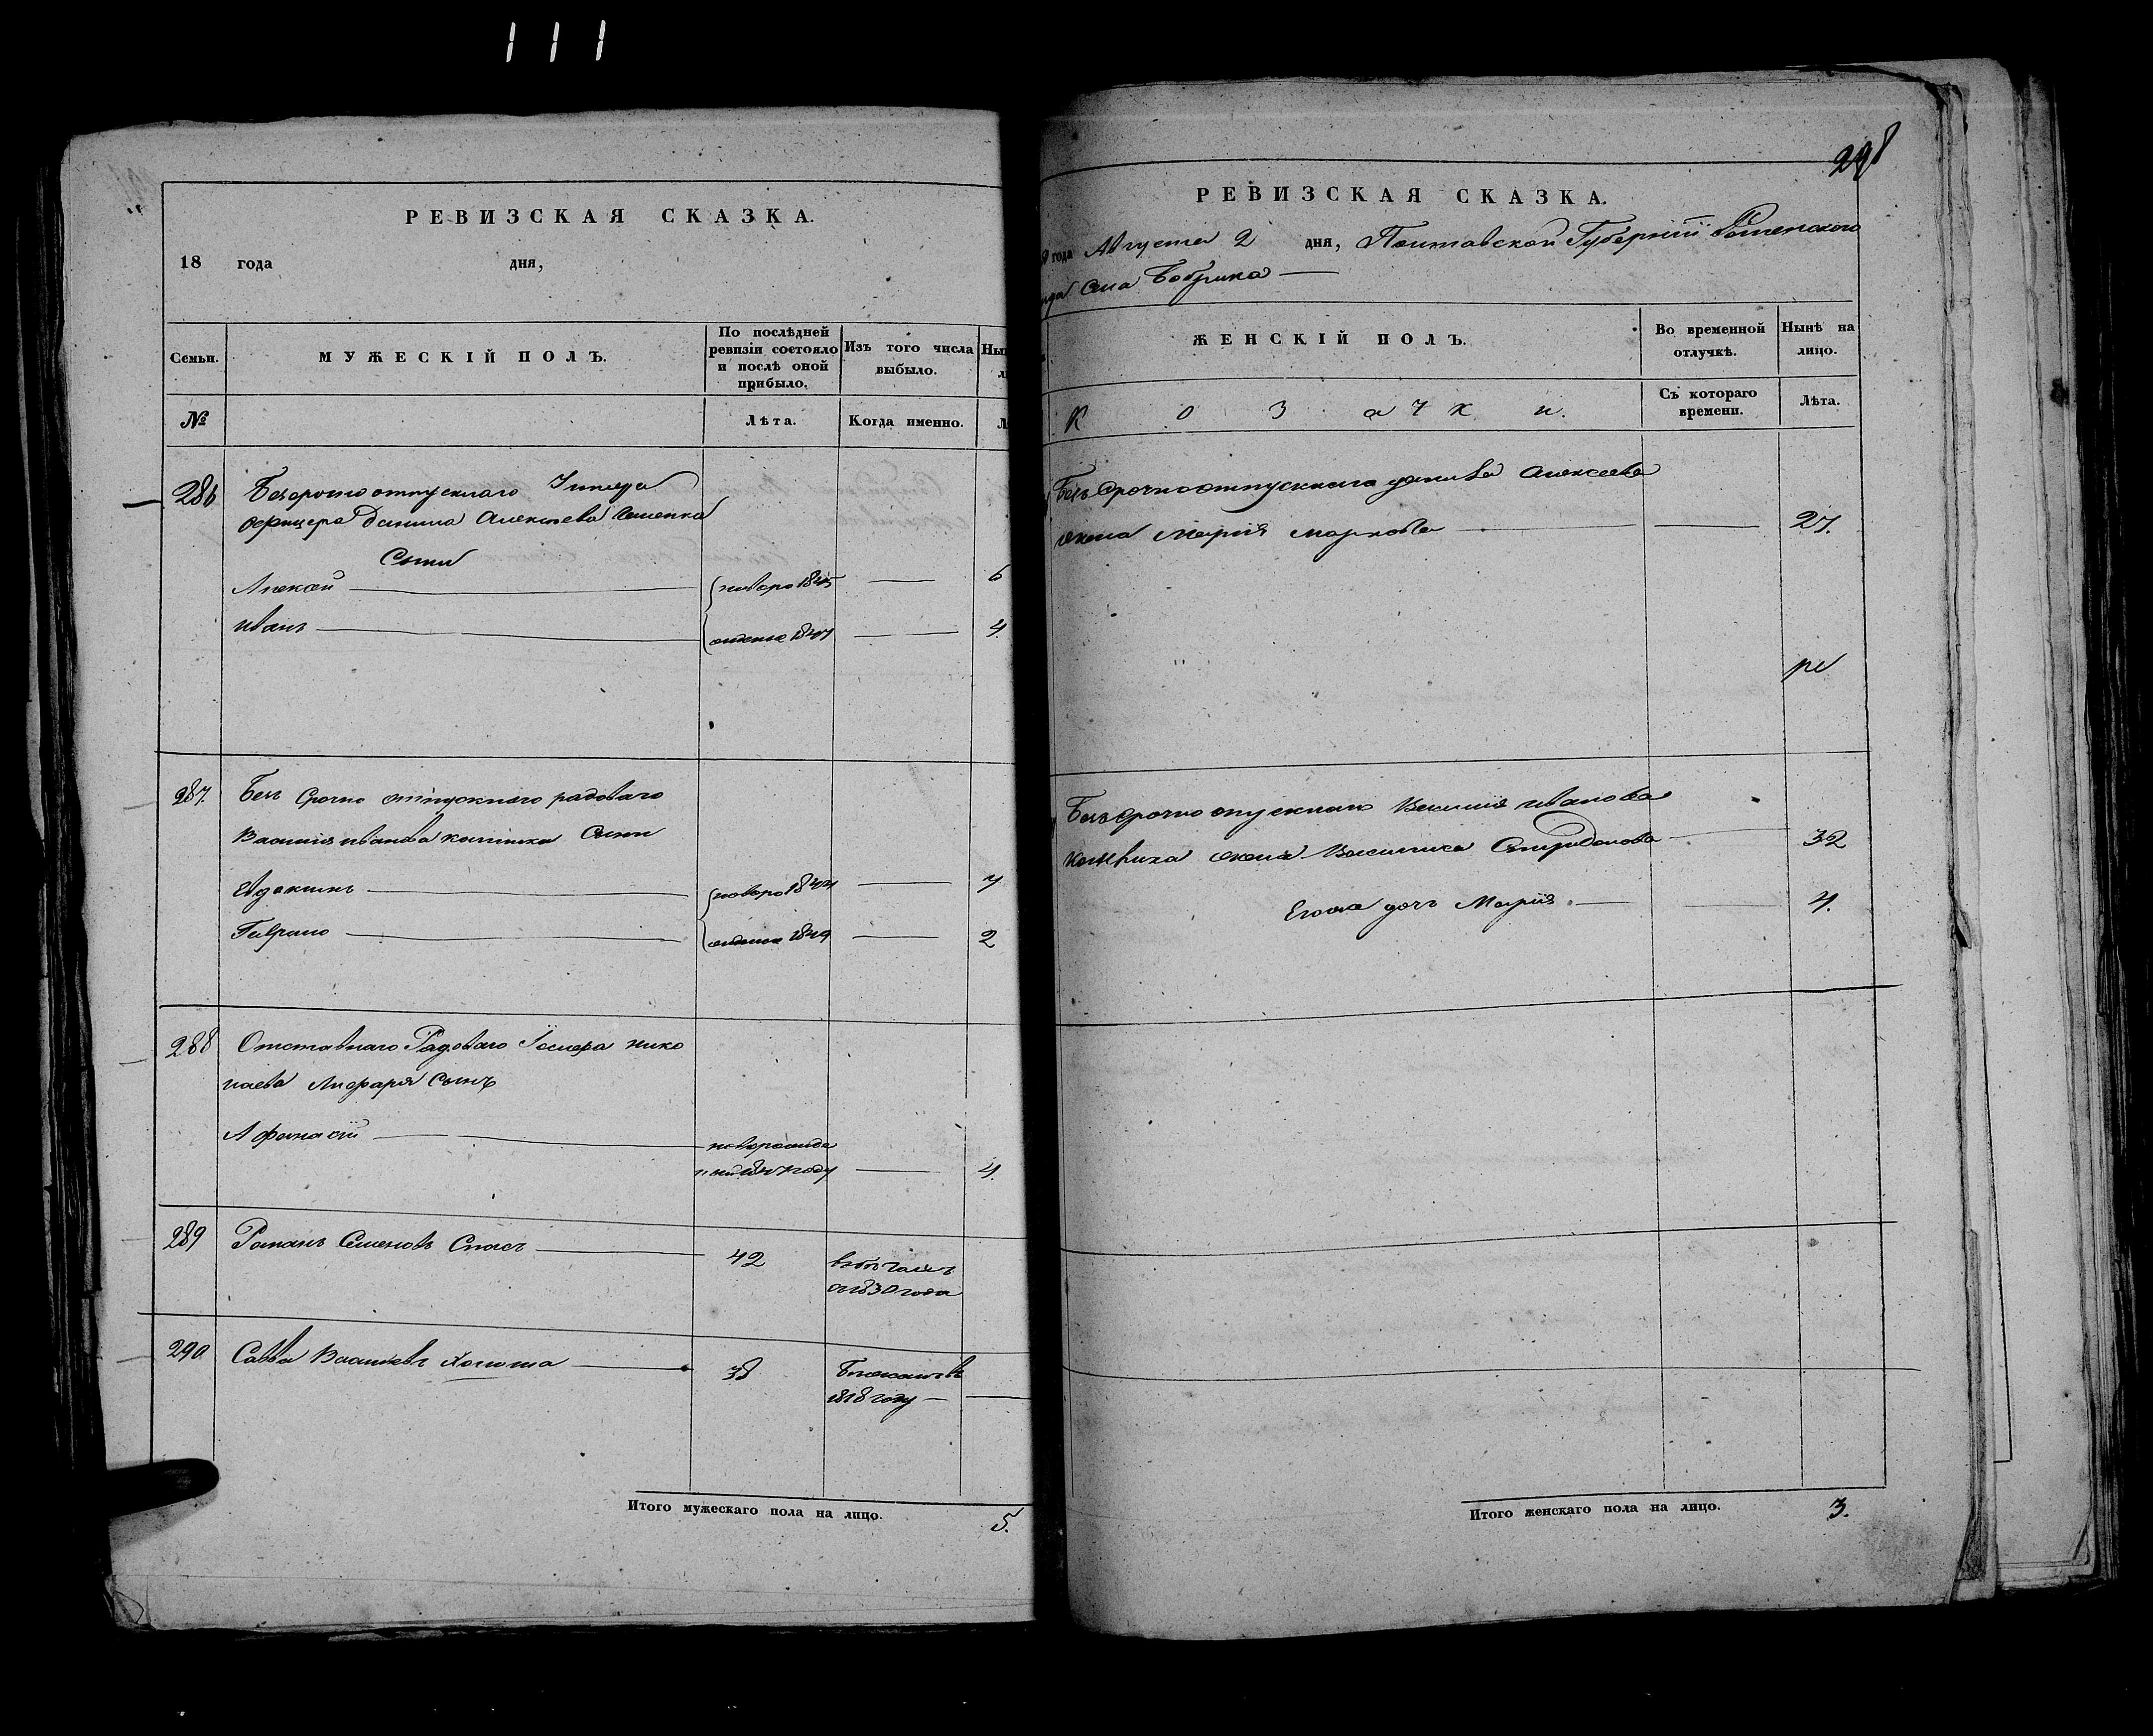 111
РЕВИЗСКАЯ СКАЗКА.
18 года дня,
Семьи. МУЖЕСКІЙ ПОЛЪ. По послѣдней ревизіи состояло и послѣ оной прибыло. Изъ того числа выбыло.
№ Лѣта. Когда именно.
286 Безсрочно отпускнаго Унтера
офицера Данила Алексѣева
Сыны
Алексей 1845 6
Иванъ 1847 4
287. Безъ Срочно отпускнаго рядоваго
Василія Иванова Сыны
Евдокимъ 1844 7
Гаврило 1849 2
288 Отставнаго Рядоваго нико
лаева Сынъ
Афанасій новорожде
1847 году 4.
289 Романъ Семеновъ 42
1830 года
290 Савва Васильевъ 38
1818 году
Итого мужескаго пола на лицо. 5.
298
РЕВИЗСКАЯ СКАЗКА.
года Августа 2 дня, Полтавской Губерніи Роменского
Села Бобрика
ЖЕНСКІЙ ПОЛЪ. Во временной отлучкѣ. Нынѣ на лицо.
Козачки. Съ котораго времени. Лѣта.
Безъ Срочноотпускнаго данила Алексеева
жена Марія Маркова 27.
Безъ срочно отпускнаго Василія иванова
жена Василиса Спиридонова 32
Егоже дочь Марія 4.
Итого женскаго пола на лицо. 3.